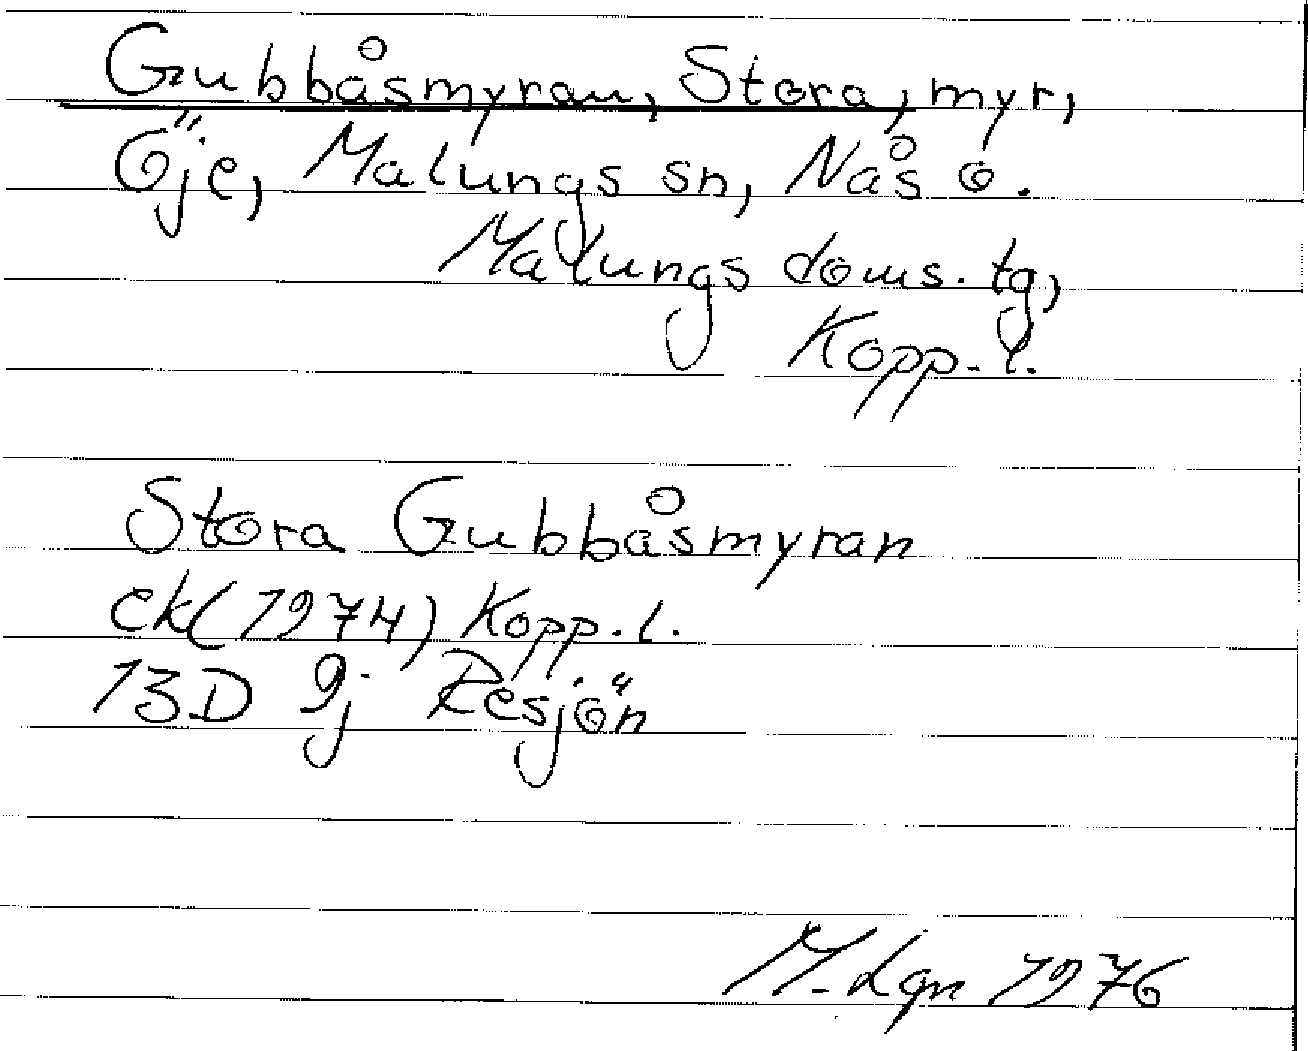 Gubbåsmyran, Stora, myr,
Öje, Malungs sn, Nås o.
Malungs doms. tg,
Kopp. l.
Stora Gubbåsmyran
ek(1974) Kopp. l.
13D 9j Resjön
M. Lgn 1976